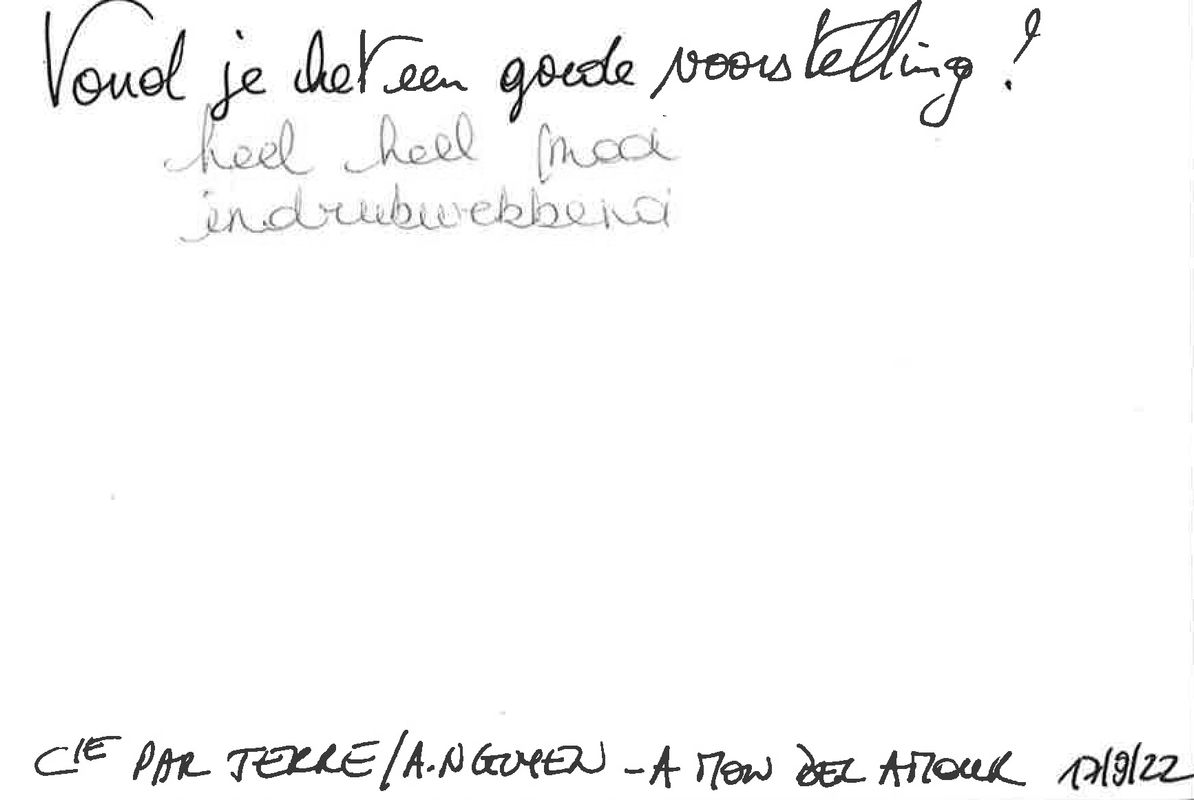 Vond je het een goede voorstelling?
heel heel mooi
indrukwekkend
CIE PAR TERRE/A.NGUYEN - A MON BEL AMOUR 17/9/22